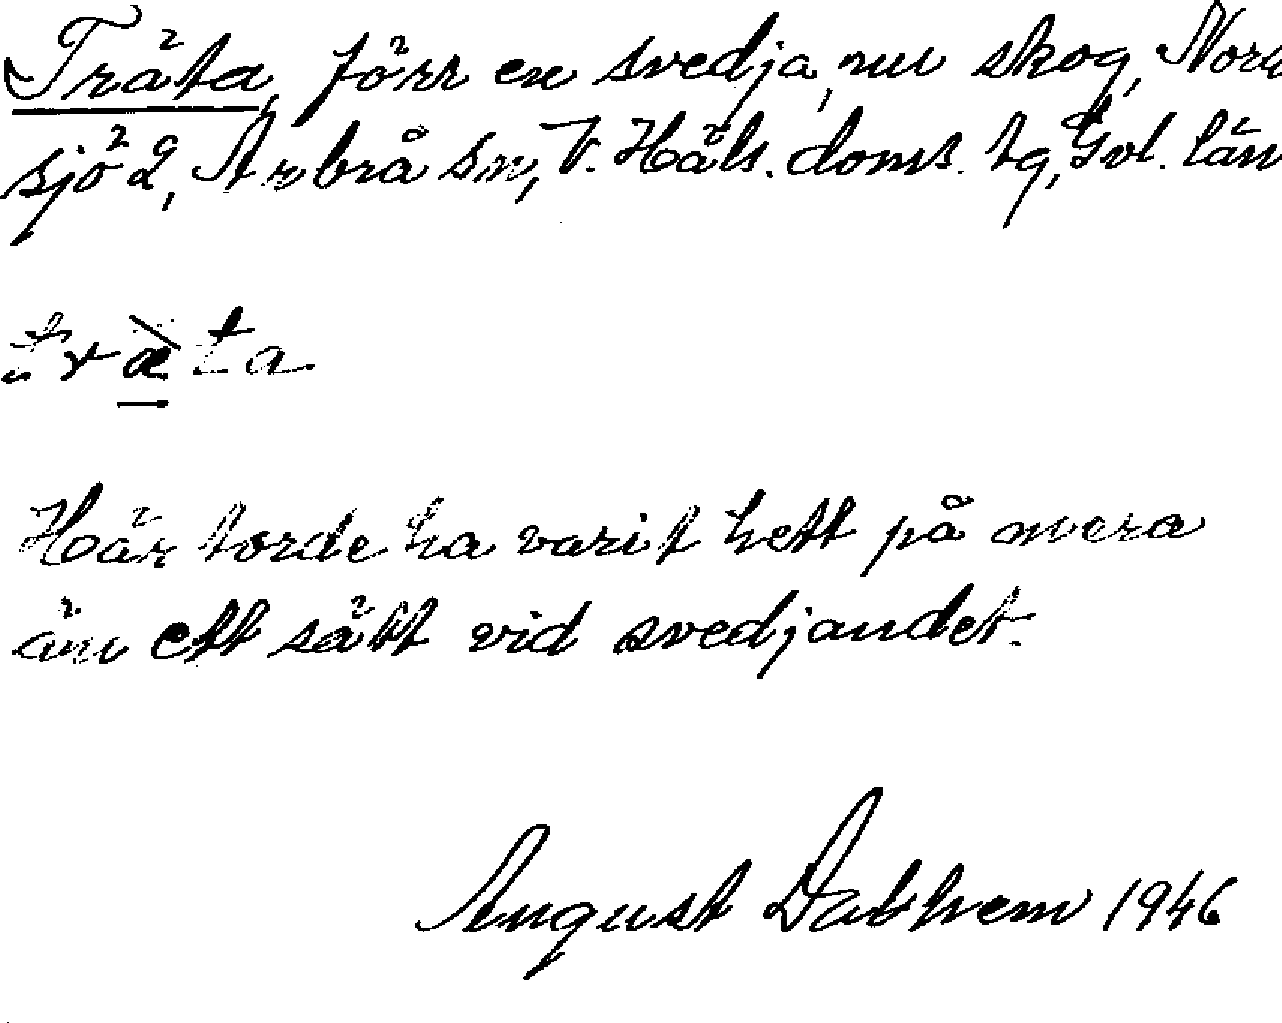 Träta, förr en svedja, nu skog, Nord
sjö 2, Arbrå sn, V. Häls. doms. tg, Gvl. län
træta
Här torde ha varit hett på mera
än ett sätt vid svedjandet.
August Dahhem 1946